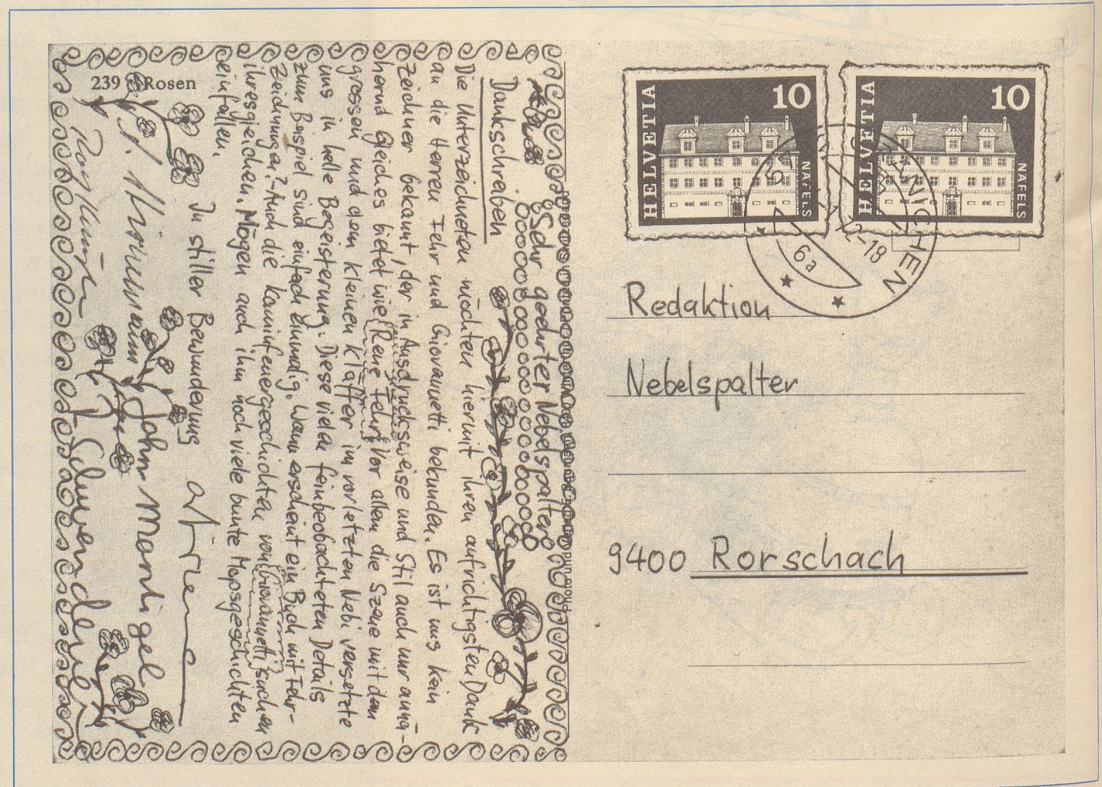 239 Rosen
Sehr geehrter Nebelspalter
Dankschreiben
Die Unterzeichneten möchten hiermit ihren aufrichtigsten Dank
an die Herren Fehr und Giovannetti bekunden. Es ist uns kein
Zeichner bekannt, der in Ausdrucksweise und Stil auch nur annä-
hernd Gleiches bietet wie René Fehr! Vor allem die Szene mit dem
grossen und dem kleinen Kläffer im vorletzten Nebi versetzte
uns in helle Begeisterung. Diese vielen feinbeobachteten Details
zum Beispiel sind einfach einmalig. Wann erscheint ein Buch mit Fehr-
Zeichnungen? – Auch die Kaminfeuergeschichten von Giovannetti suchen
ihresgleichen. Mögen auch ihm noch viele bunte Mopsgeschichten
einfallen.
In stiller Bewunderung
John Manhigel
HELVETIA
10
NÄFELS
HELVETIA
10
NÄFELS
12-18
6a
Redaktion
Nebelspalter
9400 Rorschach